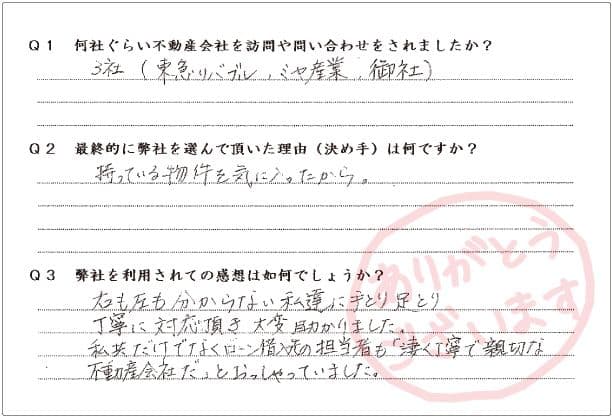 Q1 何社ぐらい不動産会社を訪問や問い合わせをされましたか？
3社（東急リバブル、ミヤ産業、御社）
Q2 最終的に弊社を選んで頂いた理由（決め手）は何ですか？
持っている物件を気に入ったから。
Q3 弊社を利用されての感想は如何でしょうか？
右も左も分からない私達に手とり足とり
丁寧に対応頂き大変助かりました。
私共だけでなくローン借入先の担当者も「凄く丁寧で親切な
不動産会社だ」とおっしゃっていました。
ありがとう
ございます